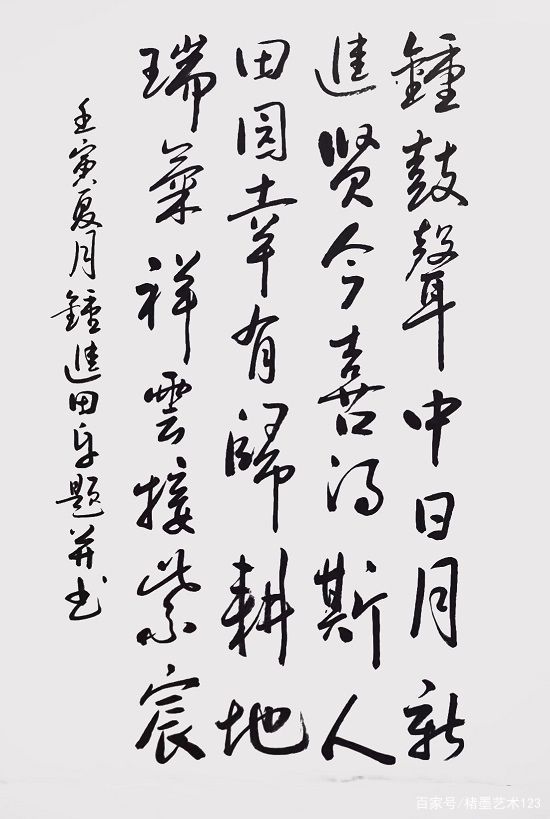 鍾鼓聲中日月新
進贤今喜得斯人
田園幸有歸耕地
瑞氣祥雲接紫宸
壬寅夏月鍾進田自题并书
百家号/楮墨艺术123